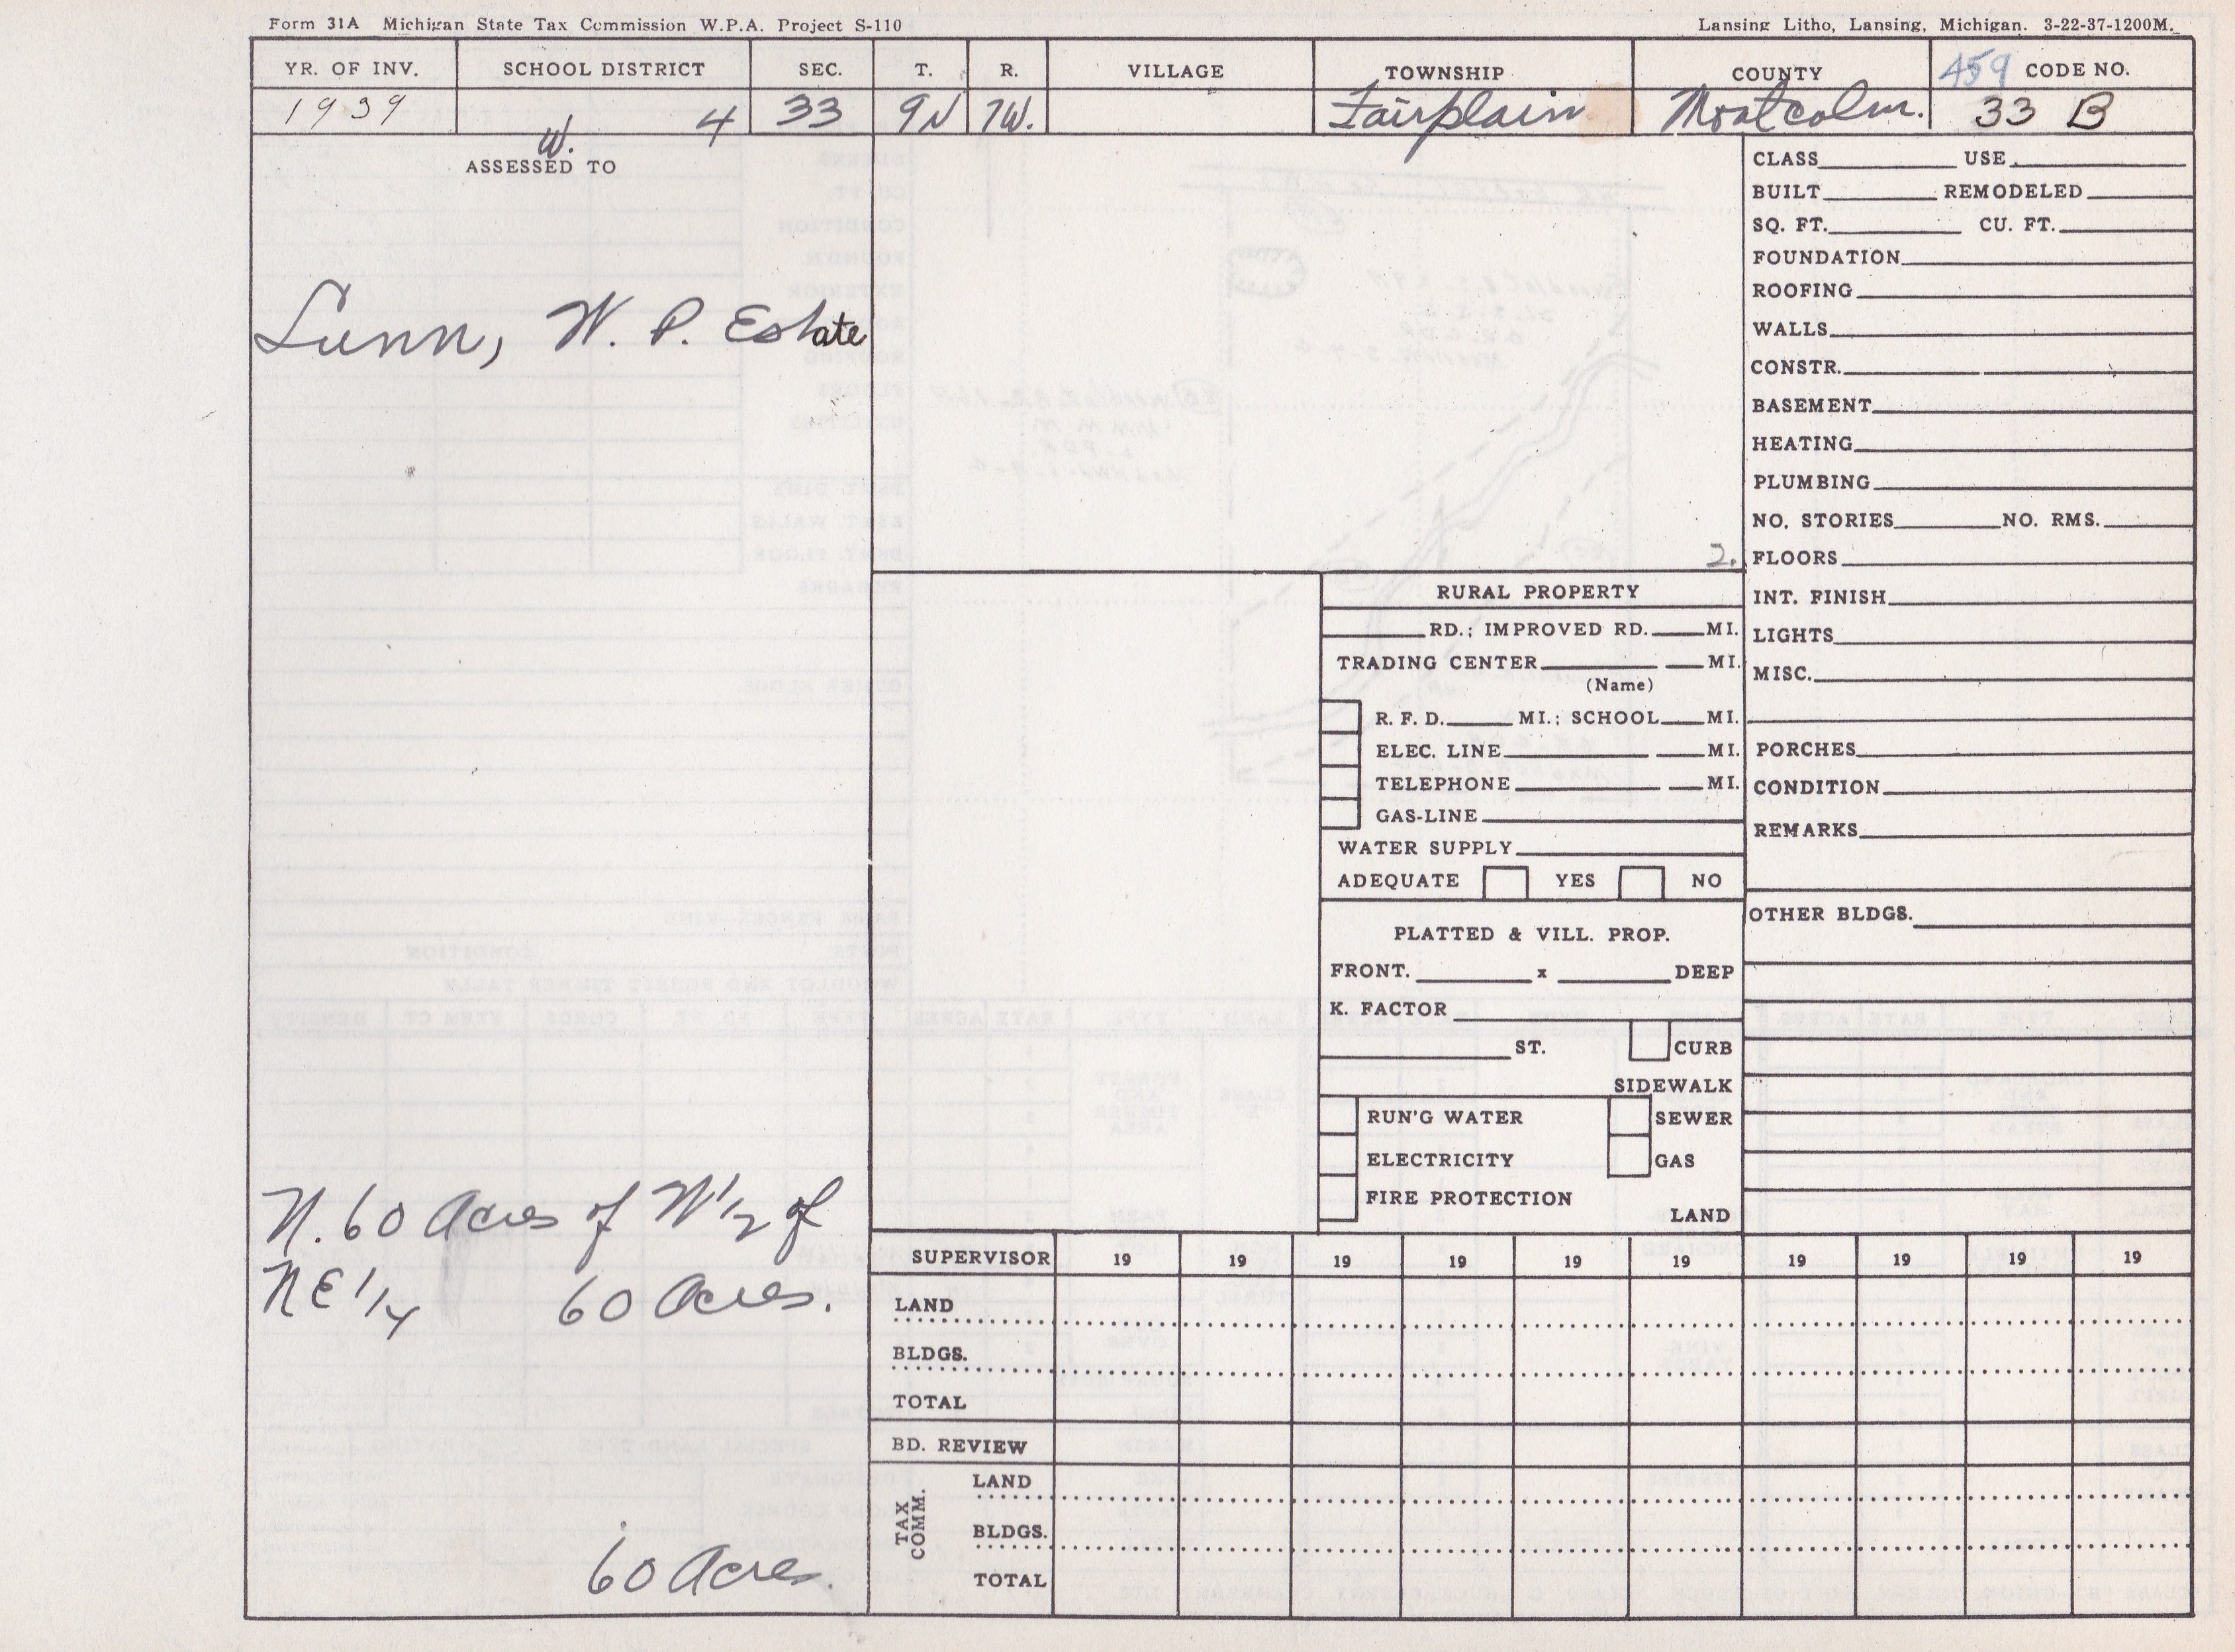 Form 31A Michigan State Tax Commission W.P.A. Project S-110
Lansing Litho, Lansing, Michigan. 3-22-37-1200M.
YR. OF INV. SCHOOL DISTRICT SEC. T. R. VILLAGE TOWNSHIP COUNTY 459 CODE NO.
1939 4 33 9N 7W. Fairplain Montcalm. 33 B
W.
ASSESSED TO
Lunn, W. P. Estate
N. 60 Acres of W 1/2 of
NE 1/4 60 Acres.
60 Acres.
2.
RURAL PROPERTY
RD.; IMPROVED RD. MI.
TRADING CENTER MI.
(Name)
R. F. D. MI.; SCHOOL MI.
ELEC. LINE MI.
TELEPHONE MI.
GAS-LINE
WATER SUPPLY
ADEQUATE YES NO
PLATTED & VILL. PROP.
FRONT. x DEEP
K. FACTOR
ST. CURB
SIDEWALK
RUN'G WATER SEWER
ELECTRICITY GAS
FIRE PROTECTION
LAND
CLASS USE
BUILT REMODELED
SQ. FT. CU. FT.
FOUNDATION
ROOFING
WALLS
CONSTR.
BASEMENT
HEATING
PLUMBING
NO. STORIES NO. RMS.
FLOORS
INT. FINISH
LIGHTS
MISC.
PORCHES
CONDITION
REMARKS
OTHER BLDGS.
SUPERVISOR 19 19 19 19 19 19 19 19 19 19
LAND
BLDGS.
TOTAL
BD. REVIEW
TAX COMM.
LAND
BLDGS.
TOTAL